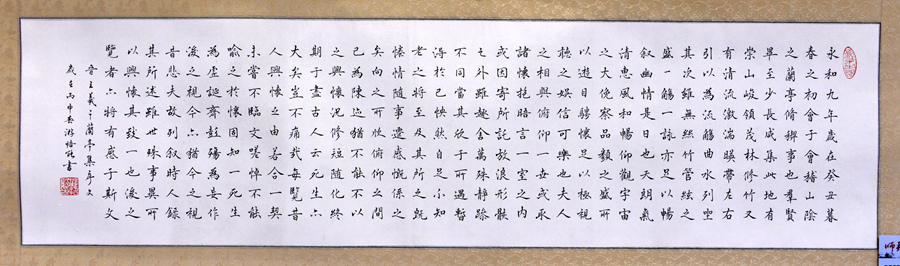 永和九年歲在癸丑暮
春之初會于會稽山陰
之蘭亭脩禊事也羣賢
畢至少長咸集此地有
崇山峻領茂林脩竹又
有清流激湍暎帶左右
引以為流觴曲水列坐
其次雖無絲竹管絃之
盛一觴一詠亦足以暢
叙幽情是日也天朗氣
清惠風和暢仰觀宇宙
之大俯察品類之盛所
以遊目騁懷足以極視
聽之娛信可樂也夫人
之相與俯仰一世或取
諸懷抱晤言一室之內
或因寄所託放浪形骸
之外雖趣舍萬殊靜躁
不同當其欣于所遇暫
得於己怏然自足不知
老之將至及其所之既
惓情隨事遷感慨係之
矣向之所欣俯仰之間
已為陳迹猶不能不以
之興懷況脩短隨化終
期于盡古人云死生亦
大矣豈不痛哉每覽昔
人興感之由若合一契
未嘗不臨文嗟悼不能
喻之於懷固知一死生
為虛誕齊彭殤為妄作
後之視今亦猶今之視
昔悲夫故列叙時人錄
其所述雖世殊事異所
以興懷其致一也後之
覽者亦將有感于斯文
晉王羲之蘭亭集序文
歲在丙申書